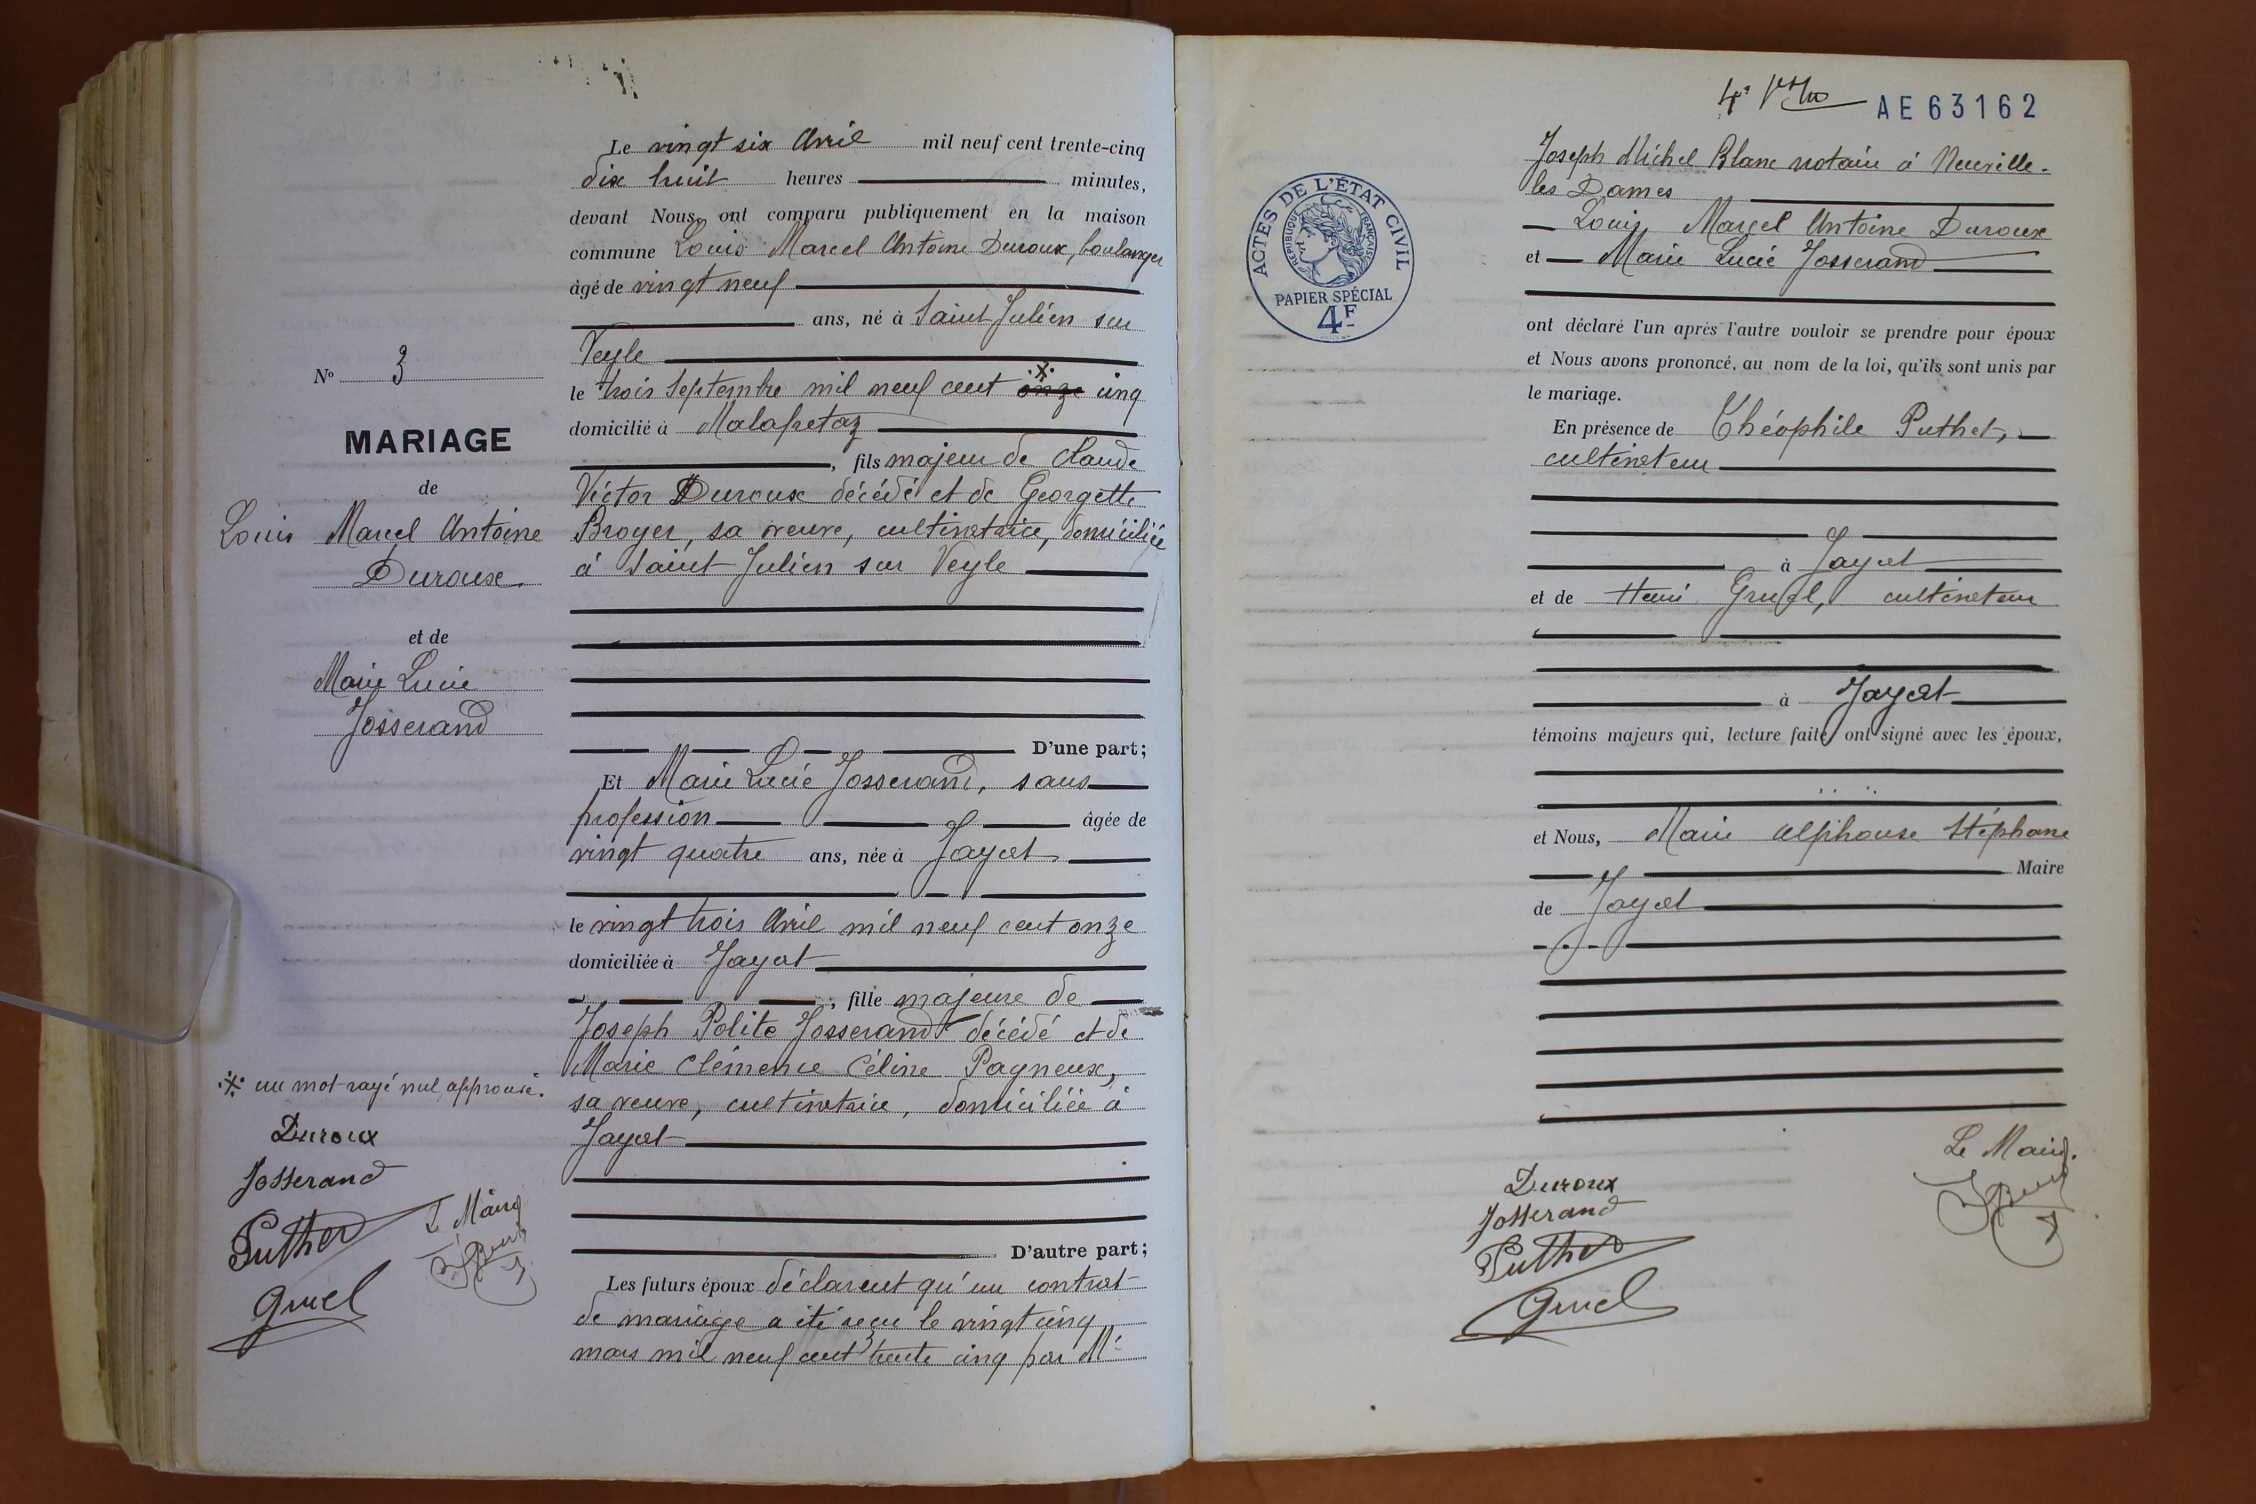 Le vingt six Avril mil neuf cent trente-cinq
dix huit heures minutes,
devant Nous, ont comparu publiquement en la maison
commune Louis Marcel Antoine Duroux, boulanger
âgé de vingt neuf
ans, né à Saint Julien sur
Veyle
le trois Septembre mil neuf cent onze cinq
domicilié à Malafretaz
, fils majeur de Claude
Victor Duroux décédé et de Georgette
Broyer, sa veuve, cultivatrice, domiciliée
à Saint Julien sur Veyle
D'une part;
Et Marie Lucie Josserand, sans
profession âgée de
vingt quatre ans, née à Jayat
le vingt trois Avril mil neuf cent onze
domiciliée à Jayat
, fille majeure de
Joseph Polite Josserand décédé et de
Marie Clémence Céline Pagneux,
sa veuve, cultivatrice, domiciliée à
Jayat
D'autre part;
Les futurs époux déclarent qu'un contrat
de mariage a été reçu le vingt cinq
mars mil neuf cent trente cinq par Me
No 3
MARIAGE
de
Louis Marcel Antoine
Duroux
et de
Marie Lucie
Josserand
un mot rayé nul, approuvé.
Duroux
Josserand
Puthet
Le Maire
Gruel
AE 63162
ACTES DE L'ÉTAT CIVIL
RÉPUBLIQUE FRANÇAISE
PAPIER SPÉCIAL
4F
Joseph Michel Blanc notaire à Neuville-
les Dames
Louis Marcel Antoine Duroux
et Marie Lucie Josserand
ont déclaré l'un après l'autre vouloir se prendre pour époux
et Nous avons prononcé, au nom de la loi, qu'ils sont unis par
le mariage.
En présence de Théophile Puthet,
cultivateur
à Jayat
et de Henri Gruel, cultivateur
à Jayat
témoins majeurs qui, lecture faite, ont signé avec les époux,
et Nous, Marie Alphonse Stéphane
Maire
de Jayat
Le Maire.
Duroux
Josserand
Puthet
Gruel